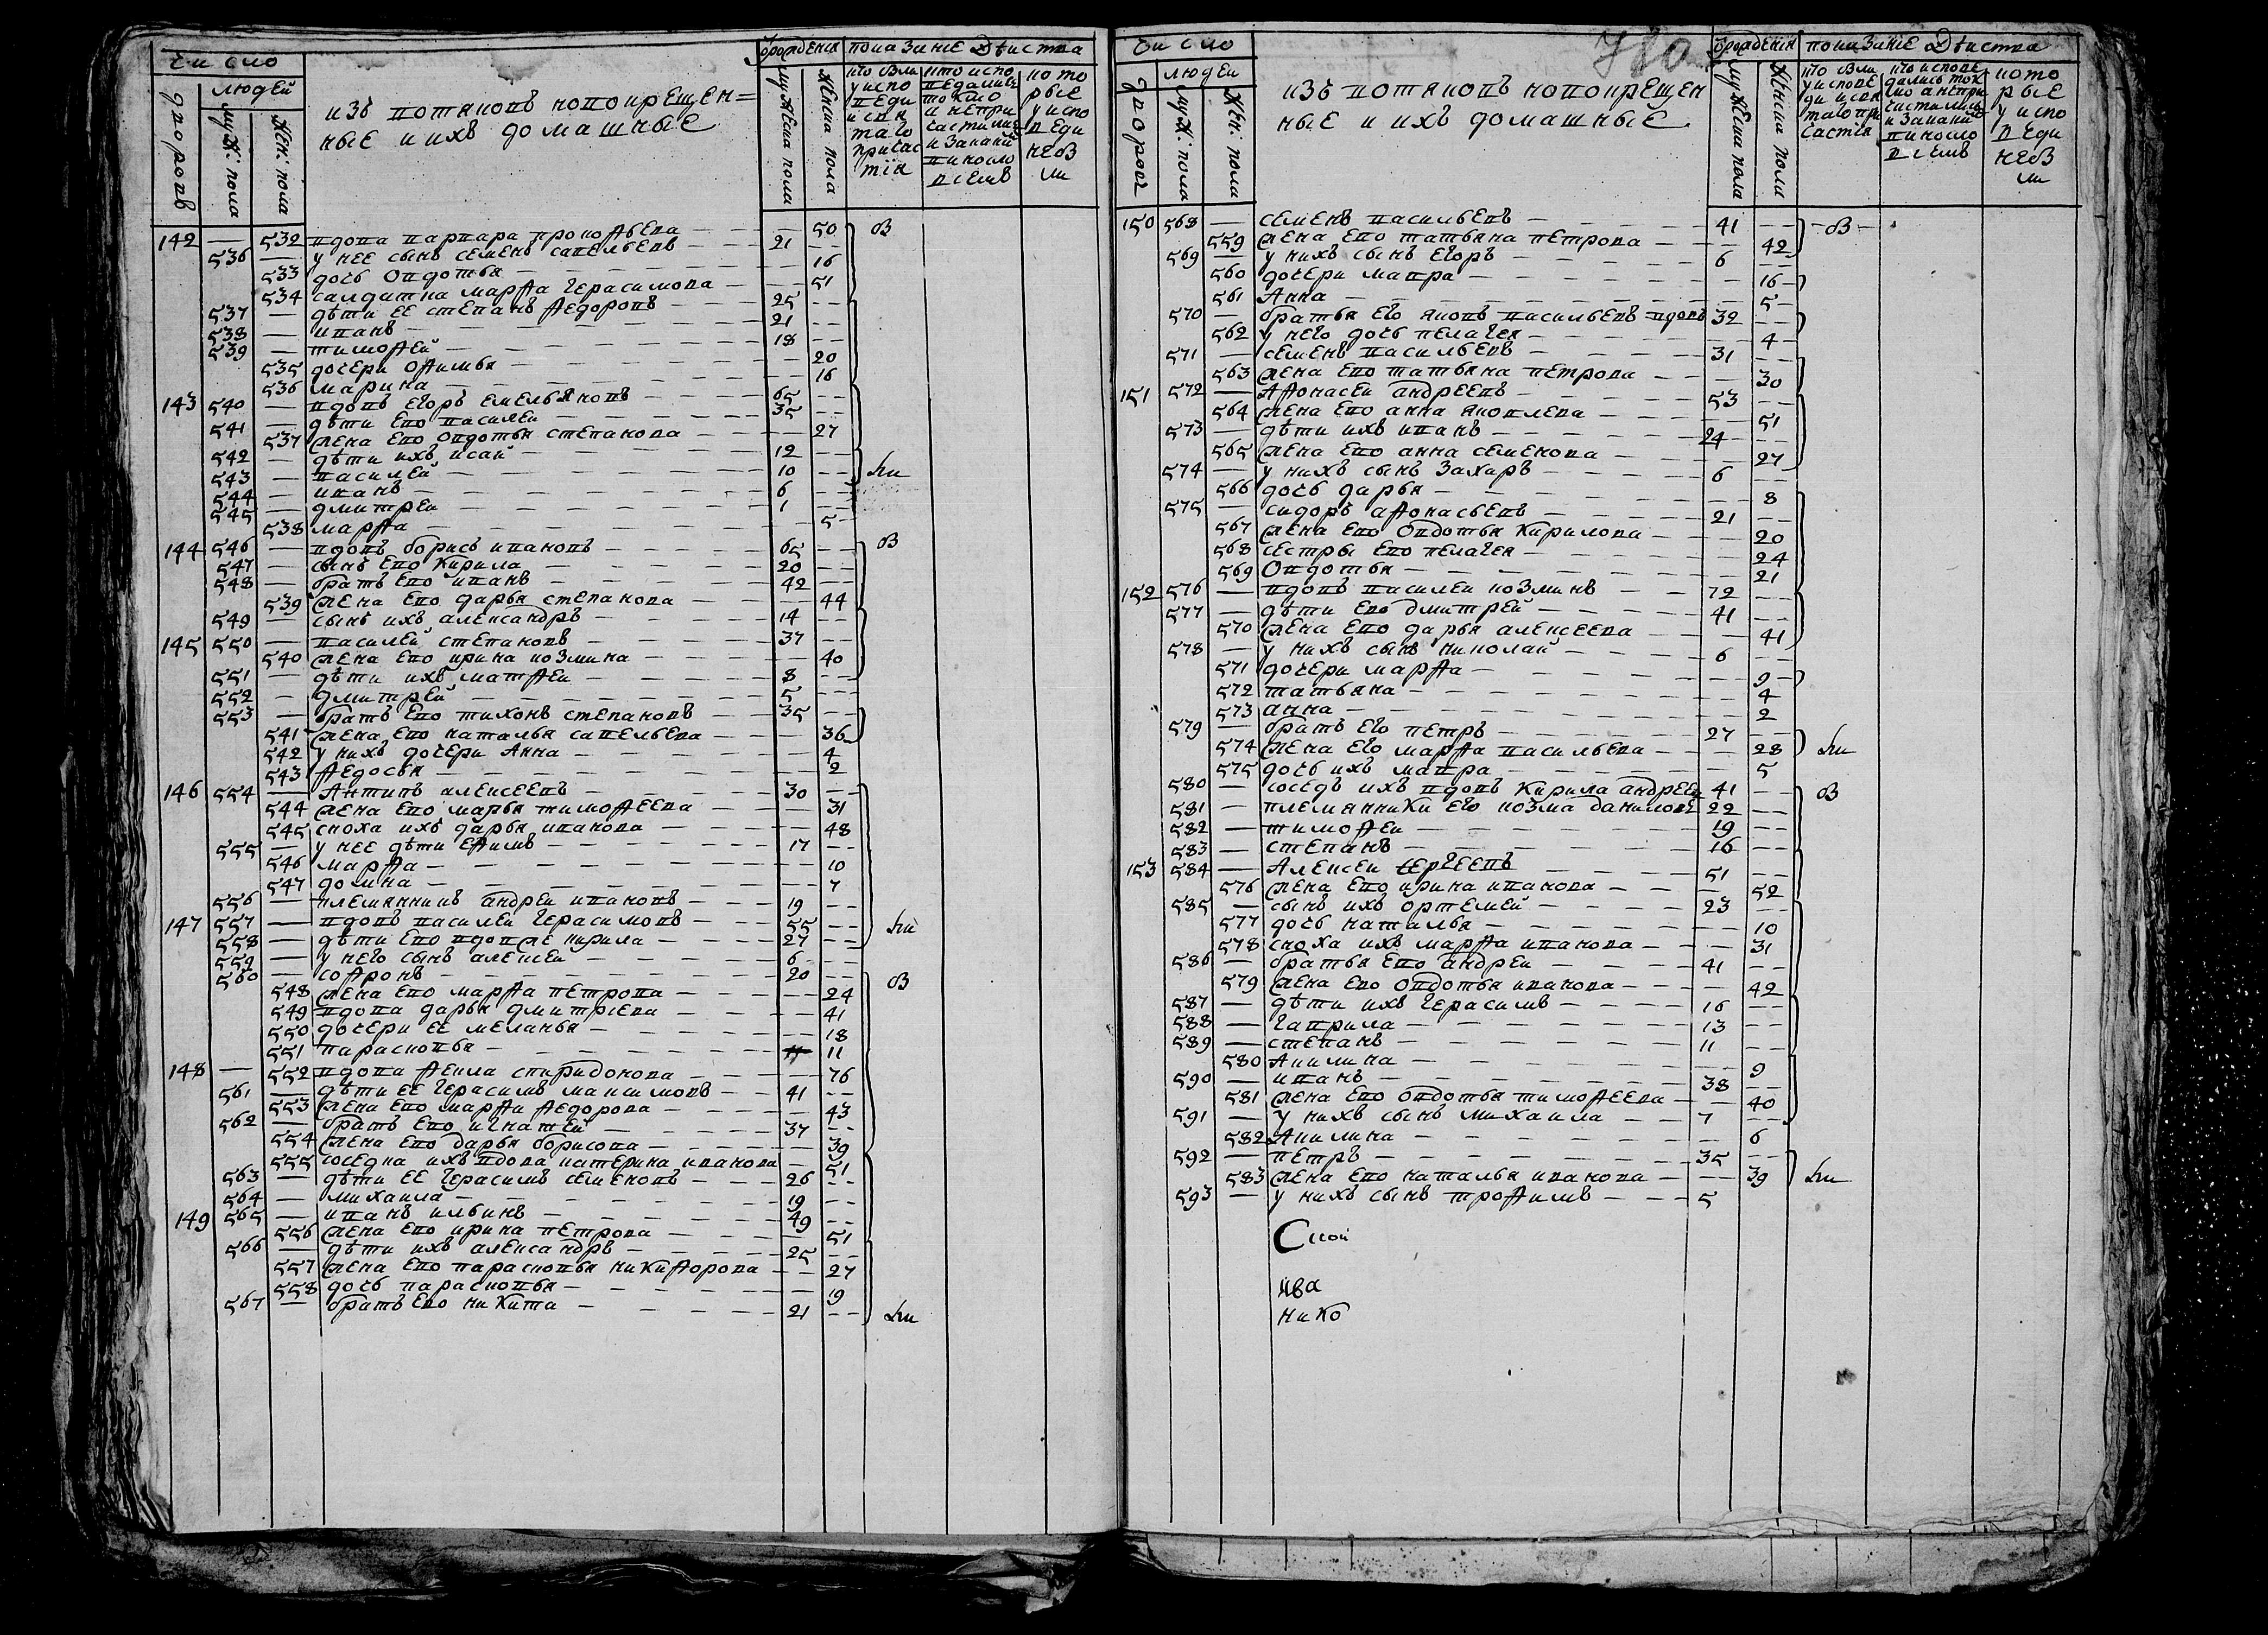 Число
дворовъ
людей
муж: пола
жен: пола
изъ вотяковъ новокрещен=
ные и ихъ домашные
рождения
мужеска пола
женска пола
показание действа
142 — 532 вдова варвара прокофьева — 50 об
536 — у нее сынъ семенъ савельевъ — 21
533 дочь овдотья — 16
534 салдатка марфа герасимова — 51
537 — дѣти ее степанъ федоровъ — 25
538 — иванъ — 21
539 — тимофей — 18
535 дочери офимья — 20
536 марина — 16
143 540 — вдовъ егоръ емельяновъ — 65
541 — дѣти ево василеи — 35
537 жена ево овдотья степанова — 27
542 — дѣти ихъ исай — 12
543 — василей — 10
544 — иванъ — 6
545 — дмитреи — 1
538 марфа — 5
144 546 — вдовъ борисъ ивановъ — 65 об
547 — сынъ ево кирила — 20
548 — братъ ево иванъ — 42
539 жена ево дарья степанова — 44
549 — сынъ ихъ александръ — 14
145 550 — василей степановъ — 37
540 жена ево ирина козмина — 40
551 — дѣти ихъ матфеи — 8
552 — дмитрей — 5
553 — братъ ево тихонъ степановъ — 35
541 жена ево наталья савельева — 36
542 у нихъ дочери Анна — 4
543 федосья — 2
146 554 — Антипъ алексеевъ — 30
544 жена ево марья тимофеева — 31
545 сноха ихъ дарья иванова — 48
555 — у нее дѣти ефимъ — 17
546 марфа — 10
547 домна — 7
556 — племянникъ андреи ивановъ — 19
147 557 — вдовъ василеи герасимовъ — 55
558 — дѣти ево вдовже кирила — 27
559 — у него сынъ алексеи — 6
560 — софронъ — 20 об
548 жена ево марфа петрова — 24
549 вдова дарья дмитриева — 41
550 дочери ее меланья — 18
551 парасковья — 11
148 — 552 вдова фекла спиридонова — 76
561 — дѣти ее герасимъ максимовъ — 41
553 жена ево марфа федорова — 43
562 — братъ ево игнатей — 37
554 жена ево дарья борисова — 39
555 соседка ихъ вдова катерина иванова — 51
563 — дѣти ее герасимъ семеновъ — 26
564 — михаила — 19
149 565 — иванъ ильинъ — 49
556 жена ево ирина петрова — 51
566 — дѣти ихъ александръ — 25
557 жена ево парасковья никифорова — 27
558 дочь парасковья — 19
567 — братъ ево никита — 21
Число
людей
муж: пола
жен: пола
изъ вотяковъ новокрещен
ные и ихъ домашные
рождения
мужеска пола
женска пола
показание действа
150 568 — семенъ васильевъ — 41 об
559 жена ево татьяна петрова — 42
569 — у нихъ сынъ егоръ — 6
560 дочери мавра — 16
561 Анна — 5
570 — братья его яковъ васильевъ вдовъ 32
562 у него дочь пелагея — 4
571 — семенъ васильевъ — 31
563 жена ево татьяна петрова — 30
151 572 — Афонасеи андреевъ — 53
564 жена ево анна яковлева — 51
573 — дѣти ихъ иванъ — 24
565 жена ево анна семенова — 27
574 — у нихъ сынъ захаръ — 6
566 дочь дарья — 8
575 — сидоръ афонасьевъ — 21
567 жена ево овдотья кирилова — 20
568 сестры ево пелагея — 24
569 Овдотья — 21
152 576 — вдовъ василеи козминъ — 72
577 — дѣти ево дмитрей — 41
570 жена ево дарья алексеева — 41
578 — у нихъ сынъ николай — 6
571 дочери марфа — 9
572 татьяна — 4
573 анна — 2
579 — братъ его петръ — 27
574 жена его марфа васильева — 28
575 дочь ихъ мавра — 5
580 — соседъ ихъ вдовъ кирила андреев 41 об
581 — племянники его козма даниловъ 22
582 — тимофеи — 19
583 — степанъ — 16
153 584 — Алексеи сергеевъ — 51
576 жена ево ирина иванова — 52
585 — сынъ ихъ ортемей — 23
577 дочь наталья — 10
578 сноха ихъ марфа иванова — 31
586 — братья ево андреи — 41
579 жена ево овдотья иванова — 42
587 — дѣти ихъ герасимъ — 16
588 — гаврила — 13
589 — степанъ — 11
580 Акилина — 9
590 — иванъ — 38
581 жена ево овдотья тимофеева — 40
591 — у нихъ сынъ михаила — 7
582 Акилина — 6
592 — петръ — 35
583 жена ево наталья иванова — 39
593 — у нихъ сынъ трофимъ — 5
ива
нико